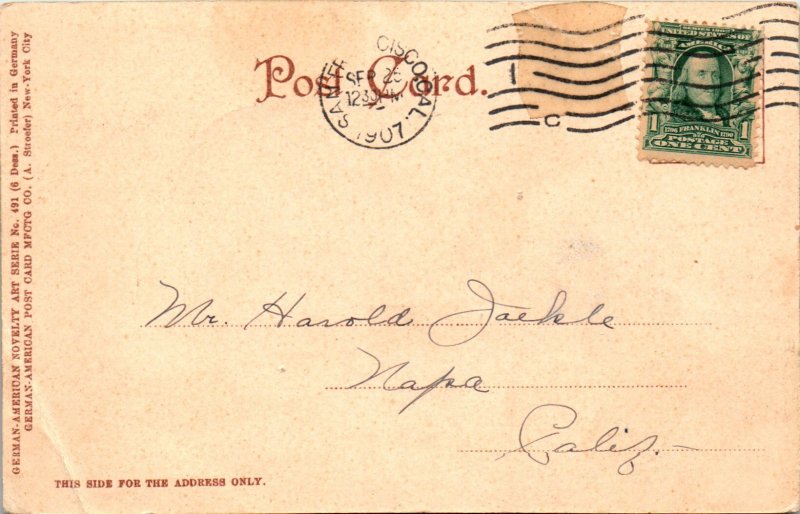 Post Card.
SAN FRANCISCO, CAL.
SEP 25
1230 PM
1907
1
C
SERIES 1902
UNITED STATES OF
AMERICA
1706 FRANKLIN 1790
1 ONE CENT 1
Mr. Harold Jaekle
Napa
Calif.
THIS SIDE FOR THE ADDRESS ONLY.
GERMAN-AMERICAN NOVELTY ART SERIE No. 491 (6 Dess.) Printed in Germany
GERMAN-AMERICAN POST CARD MFCTG CO. (A. Stroefer) New-York City